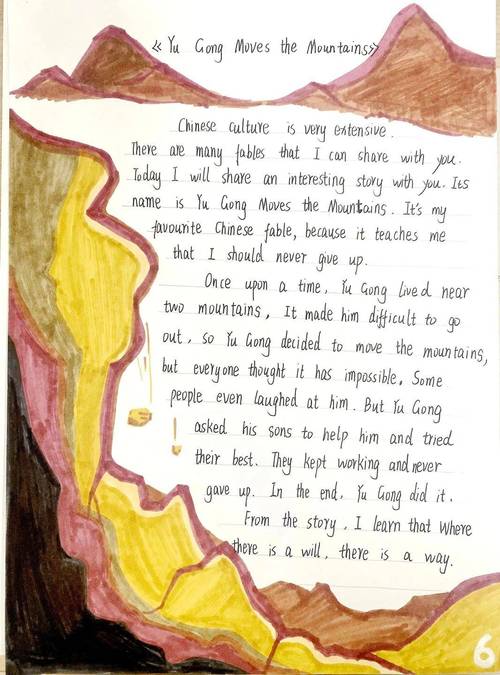 《Yu Gong Moves the Mountains》
Chinese culture is very extensive.
There are many fables that I can share with you.
Today I will share an interesting story with you. Its
name is Yu Gong Moves the Mountains. It's my
favourite Chinese fable, because it teaches me
that I should never give up.
Once upon a time, Yu Gong lived near
two mountains, It made him difficult to go
out, so Yu Gong decided to move the mountains,
but everyone thought it has impossible. Some
people even laughed at him. But Yu Gong
asked his sons to help him and tried
their best. They kept working and never
gave up. In the end, Yu Gong did it.
From the story, I learn that Where
there is a will, there is a way.
6